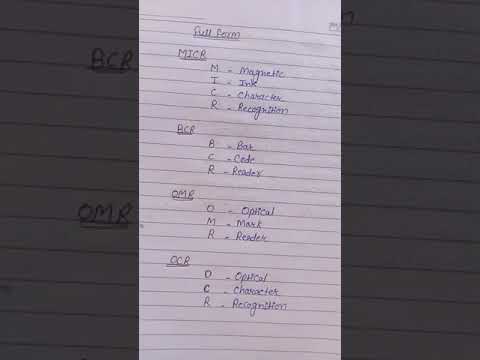 Full Form
MICR
M - Magnetic
I - Ink
C - Character
R - Recognition
BCR
B - Bar
C - Code
R - Reader
OMR
O - Optical
M - Mark
R - Reader
OCR
O - Optical
C - Character
R - Recognition
BCR
OMR